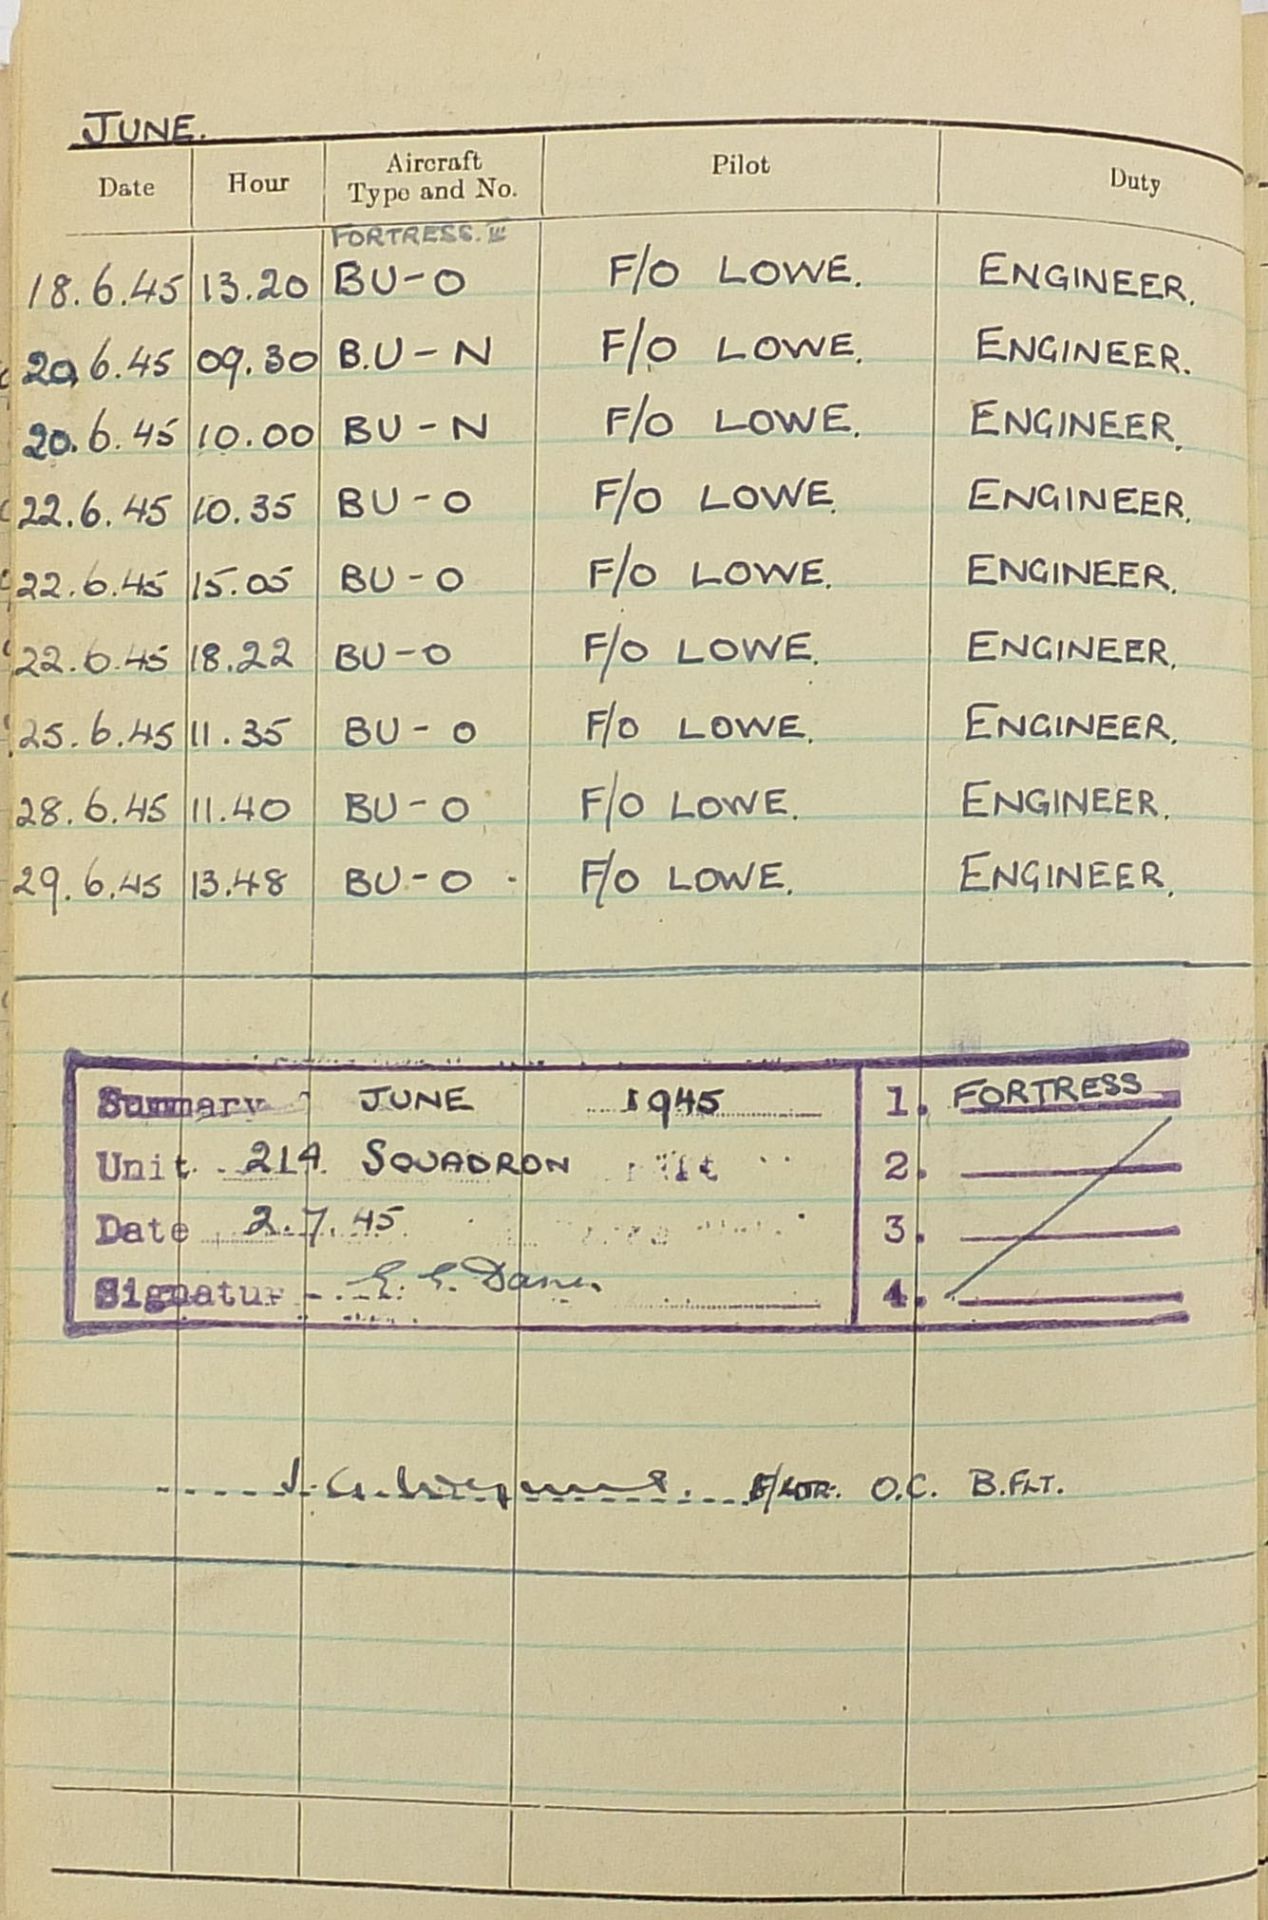 JUNE.
Date Hour Aircraft Type and No. Pilot Duty
FORTRESS. III
18.6.45 13.20 BU-O F/O LOWE. ENGINEER.
20.6.45 09.30 B.U-N F/O LOWE. ENGINEER.
20.6.45 10.00 BU-N F/O LOWE. ENGINEER.
22.6.45 10.35 BU-O F/O LOWE. ENGINEER.
22.6.45 15.05 BU-O F/O LOWE. ENGINEER.
22.6.45 18.22 BU-O F/O LOWE. ENGINEER.
25.6.45 11.35 BU-O F/O LOWE. ENGINEER.
28.6.45 11.40 BU-O F/O LOWE. ENGINEER.
29.6.45 13.48 BU-O F/O LOWE. ENGINEER.
Summary JUNE 1945 1. FORTRESS
Unit 214 SQUADRON 2.
Date 2.7.45 3.
Signature E. E. 4.
O.C. B.FLT.